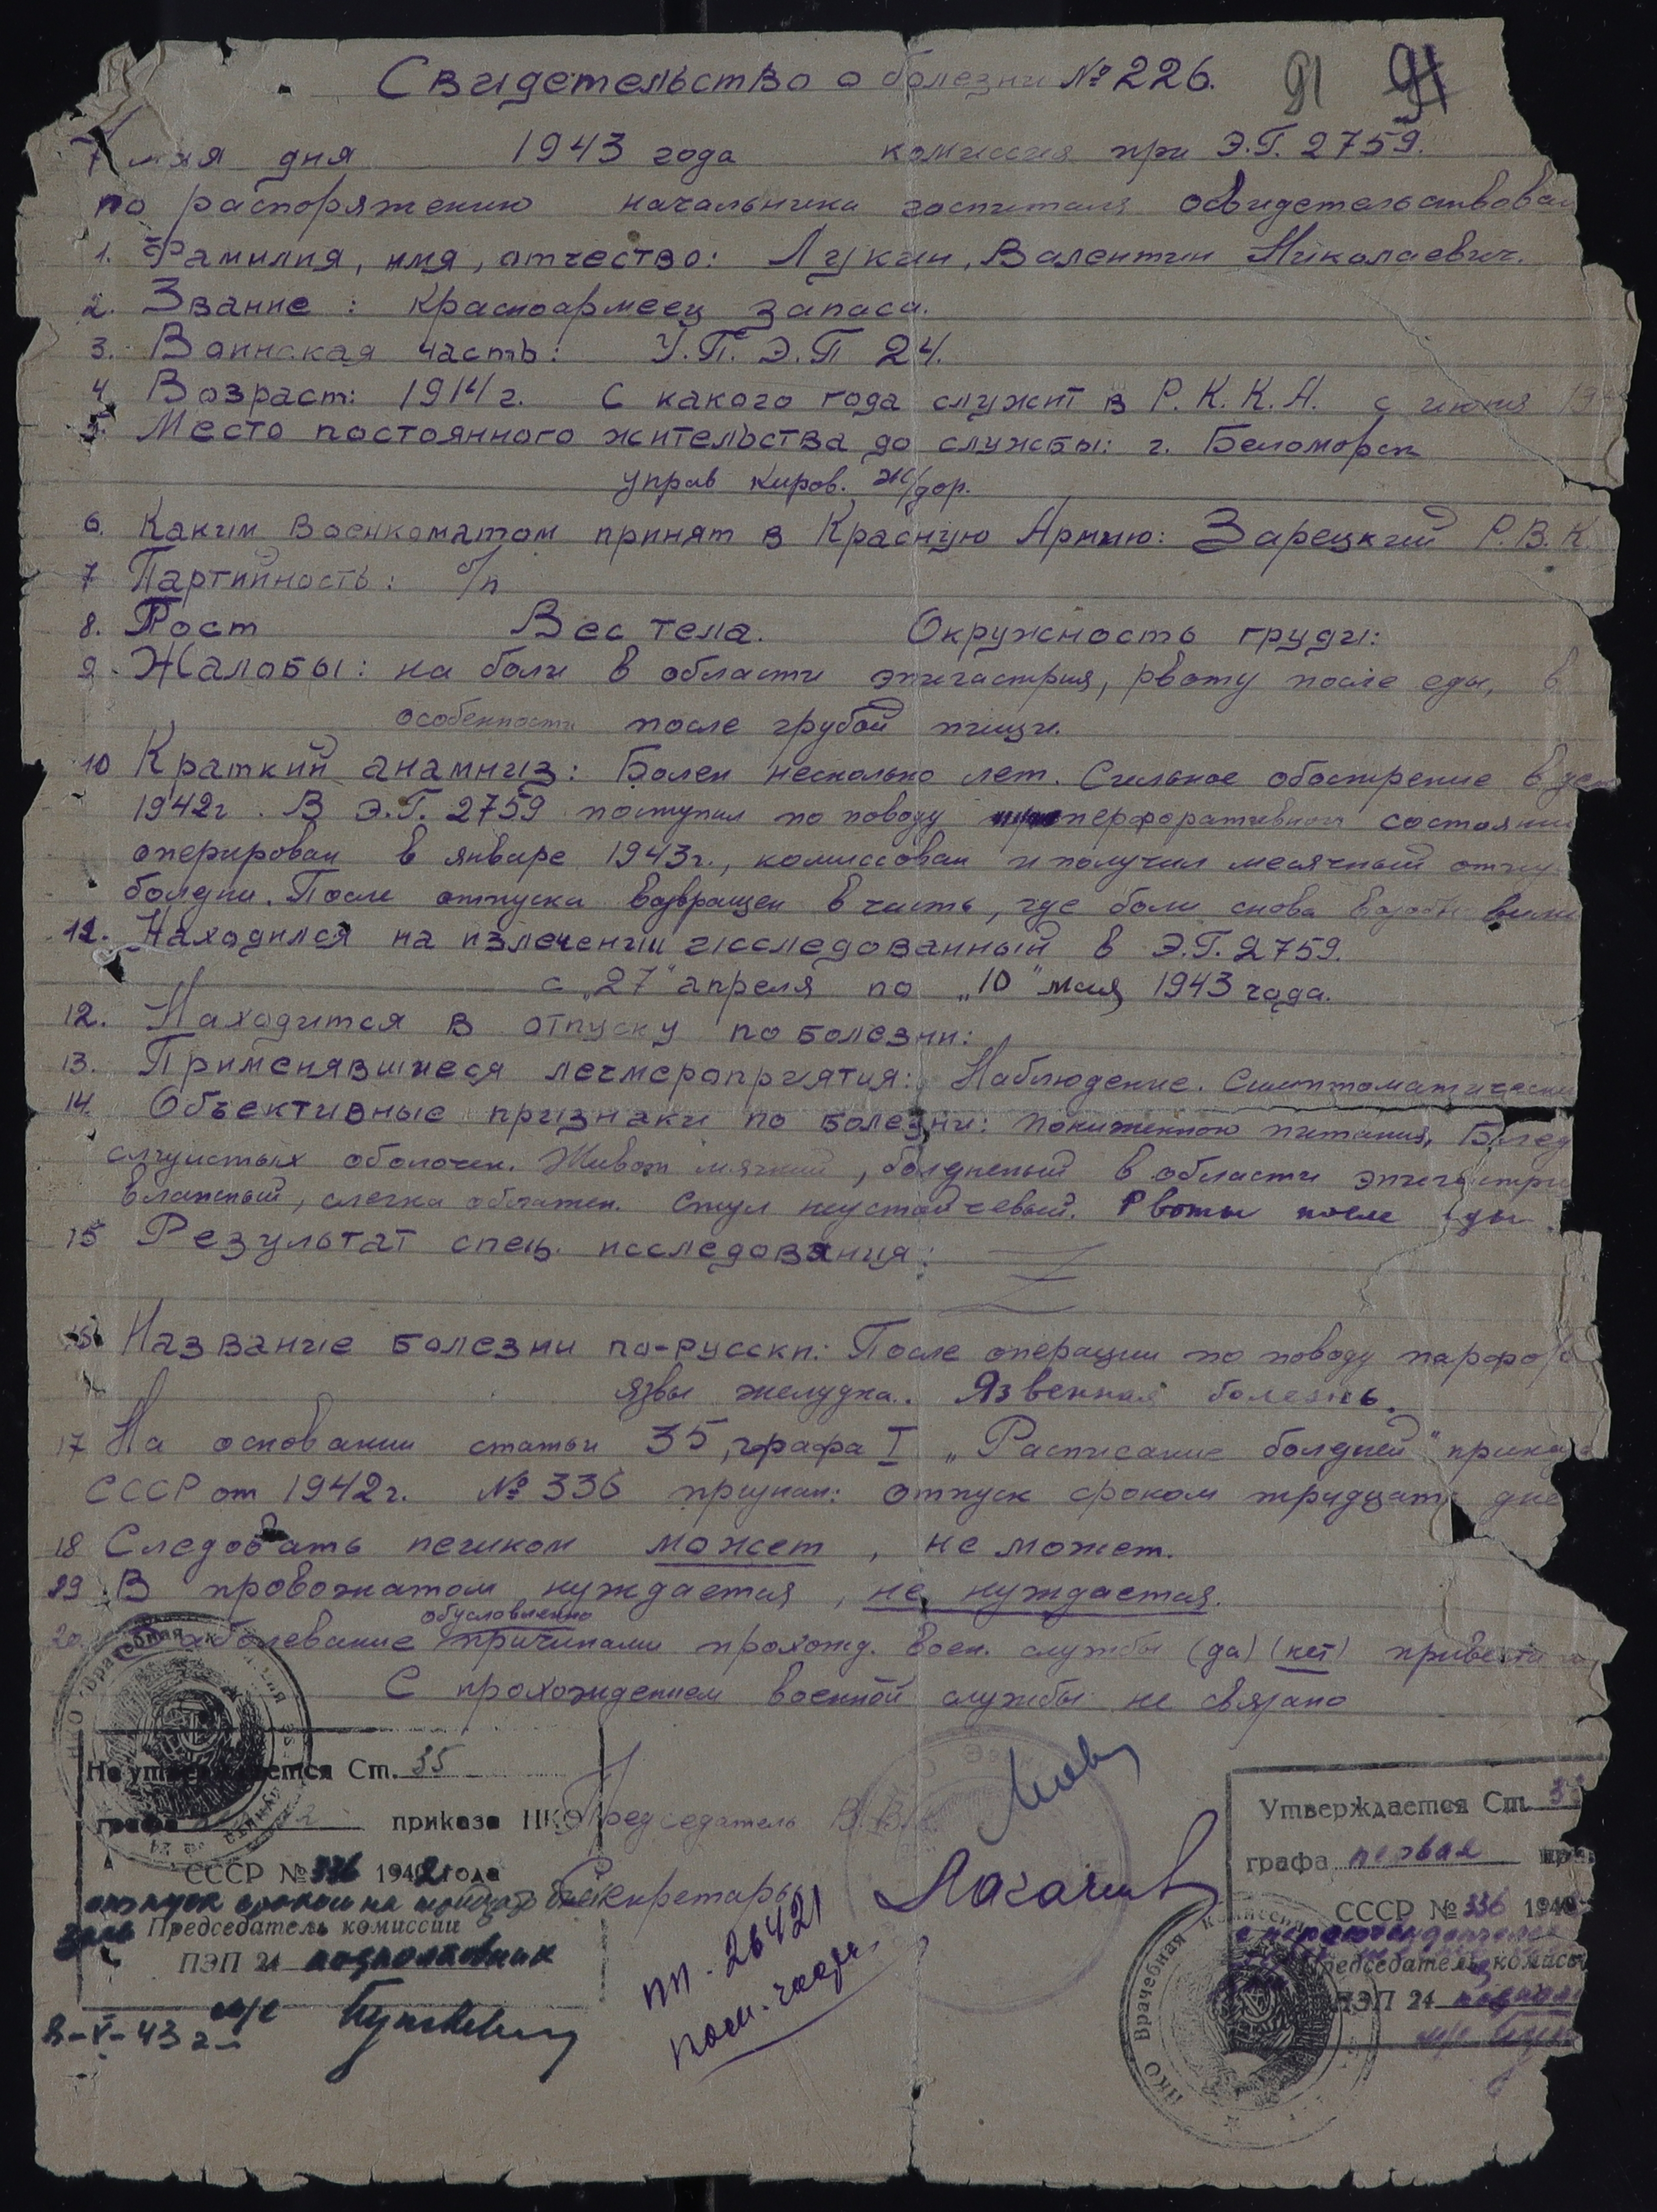 Свидетельство о болезни № 226.
91 91
7 мая дня 1943 года комиссия при Э.Г. 2759.
по распоряжению начальника госпиталя освидетельствовал
1. Фамилия, имя, отчество: Лукин, Валентин Николаевич.
2. Звание: красноармеец запаса.
3. Воинская часть: У.П.Э.П 24.
4. Возраст: 1914 г. С какого года служит в Р.К.К.А. с июня 19
5. Место постоянного жительства до службы: г. Беломорск
управ Киров. ж/дор.
6. Каким военкоматом принят в Красную Армию: Зарецкий Р.В.К.
7 Партийность: б/п
8. Рост Вес тела. Окружность груди:
9. Жалобы: на боли в области эпигастрия, рвоту после еды, в
особенности после грубой пищи.
10 Краткий анамниз: Болен несколько лет. Сильное обострение в дек
1942г. В Э.Г. 2759 поступил по поводу перфоративного состояния
оперирован в январе 1943г., комиссован и получил месячный отпу
болезни. После отпуска возвращен в часть, где боли снова
11. Находился на излечении исследованный в Э.Г. 2759.
с „27" апреля по „10" мая 1943 года.
12. Находится в отпуску по болезни:
13. Применявшиеся лечмероприятия: Наблюдение. Симптоматически
14. Объективные признаки по болезни: пониженного питания, Блед
слизистых оболочек. Живот мягкий, болезненый в области эпигастри
влажный, слегка обложен. Стул неустойчевый. Рвоты после еды.
15 Результат спец. исследования:
Название болезни по-русски: После операции по поводу парфо
язвы желудка. Язвенная болезнь.
17 На основании статьи 35, графа I „Расписание болезней" приказа
СССР от 1942г. № 336 признан: отпуск сроком тридцать дне
18 Следовать пешком может, не может.
19. В провожатом нуждается, не нуждается.
обусловленно
20. Заболевание причинами прохожд. воен. службы (да) (нет) привести
С прохождением военной службы не связано
НКО Врачебная
Не утверждается Ст. 35
графа 2 приказа НКО
СССР № 336 1942 года
отпуск сроком на тридцать
Председатель комиссии
ПЭП 24 подполковник
м/с
8-V-43 г.
Председатель В.В.К.
Секретарь
пп. 26421
Утверждается Ст. 35
графа первая
СССР № 336 194
Председатель комисс
ПЭП 24
м/с
НКО Врачебная комиссия